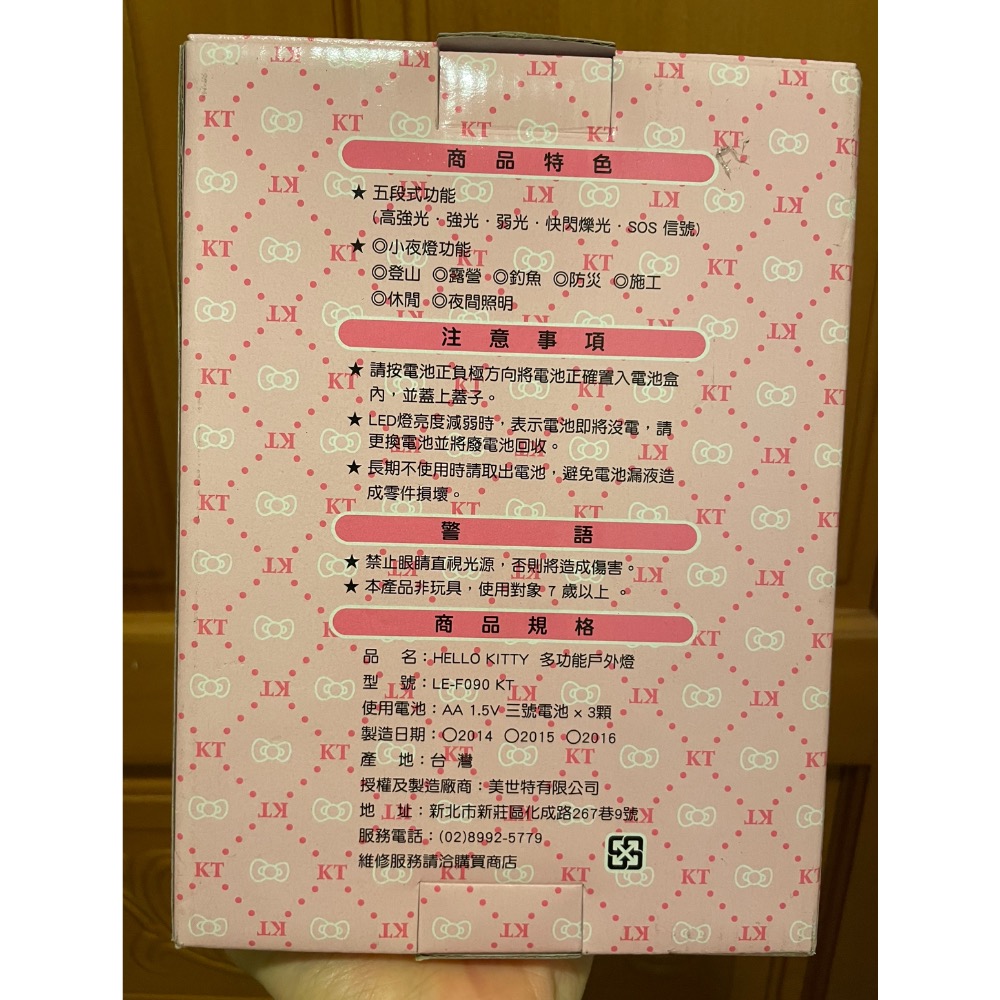 商品特色
★ 五段式功能
（高強光．強光．弱光．快閃爍光．SOS 信號）
★ ◎小夜燈功能
◎登山 ◎露營 ◎釣魚 ◎防災 ◎施工
◎休閒 ◎夜間照明
注意事項
★ 請按電池正負極方向將電池正確置入電池盒
內，並蓋上蓋子。
★ LED燈亮度減弱時，表示電池即將沒電，請
更換電池並將廢電池回收。
★ 長期不使用時請取出電池，避免電池漏液造
成零件損壞。
警語
★ 禁止眼睛直視光源，否則將造成傷害。
★ 本產品非玩具，使用對象 7 歲以上 。
商品規格
品 名：HELLO KITTY 多功能戶外燈
型 號：LE-F090 KT
使用電池：AA 1.5V 三號電池 × 3顆
製造日期：○2014 ○2015 ○2016
產 地：台 灣
授權及製造廠商：美世特有限公司
地 址：新北市新莊區化成路267巷9號
服務電話：(02)8992-5779
維修服務請洽購買商店